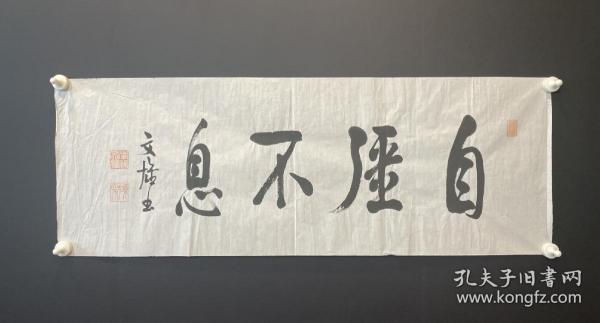 自彊不息
孔夫子旧書网
www.kongfz.com